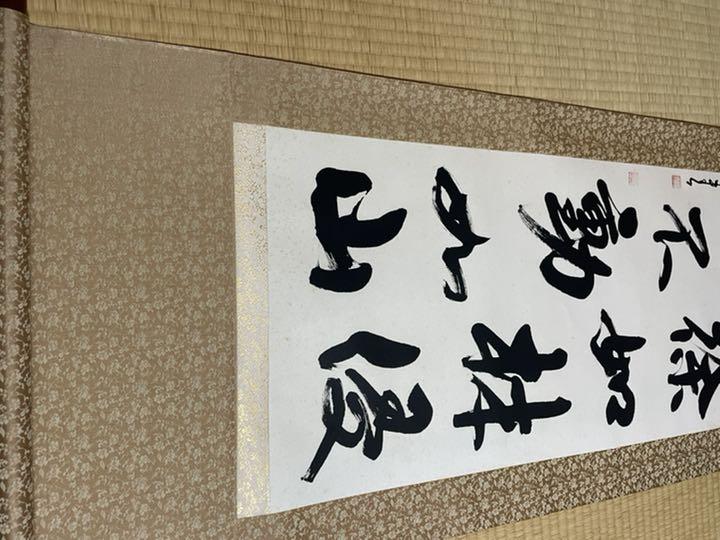 徐如林侵
不動如山